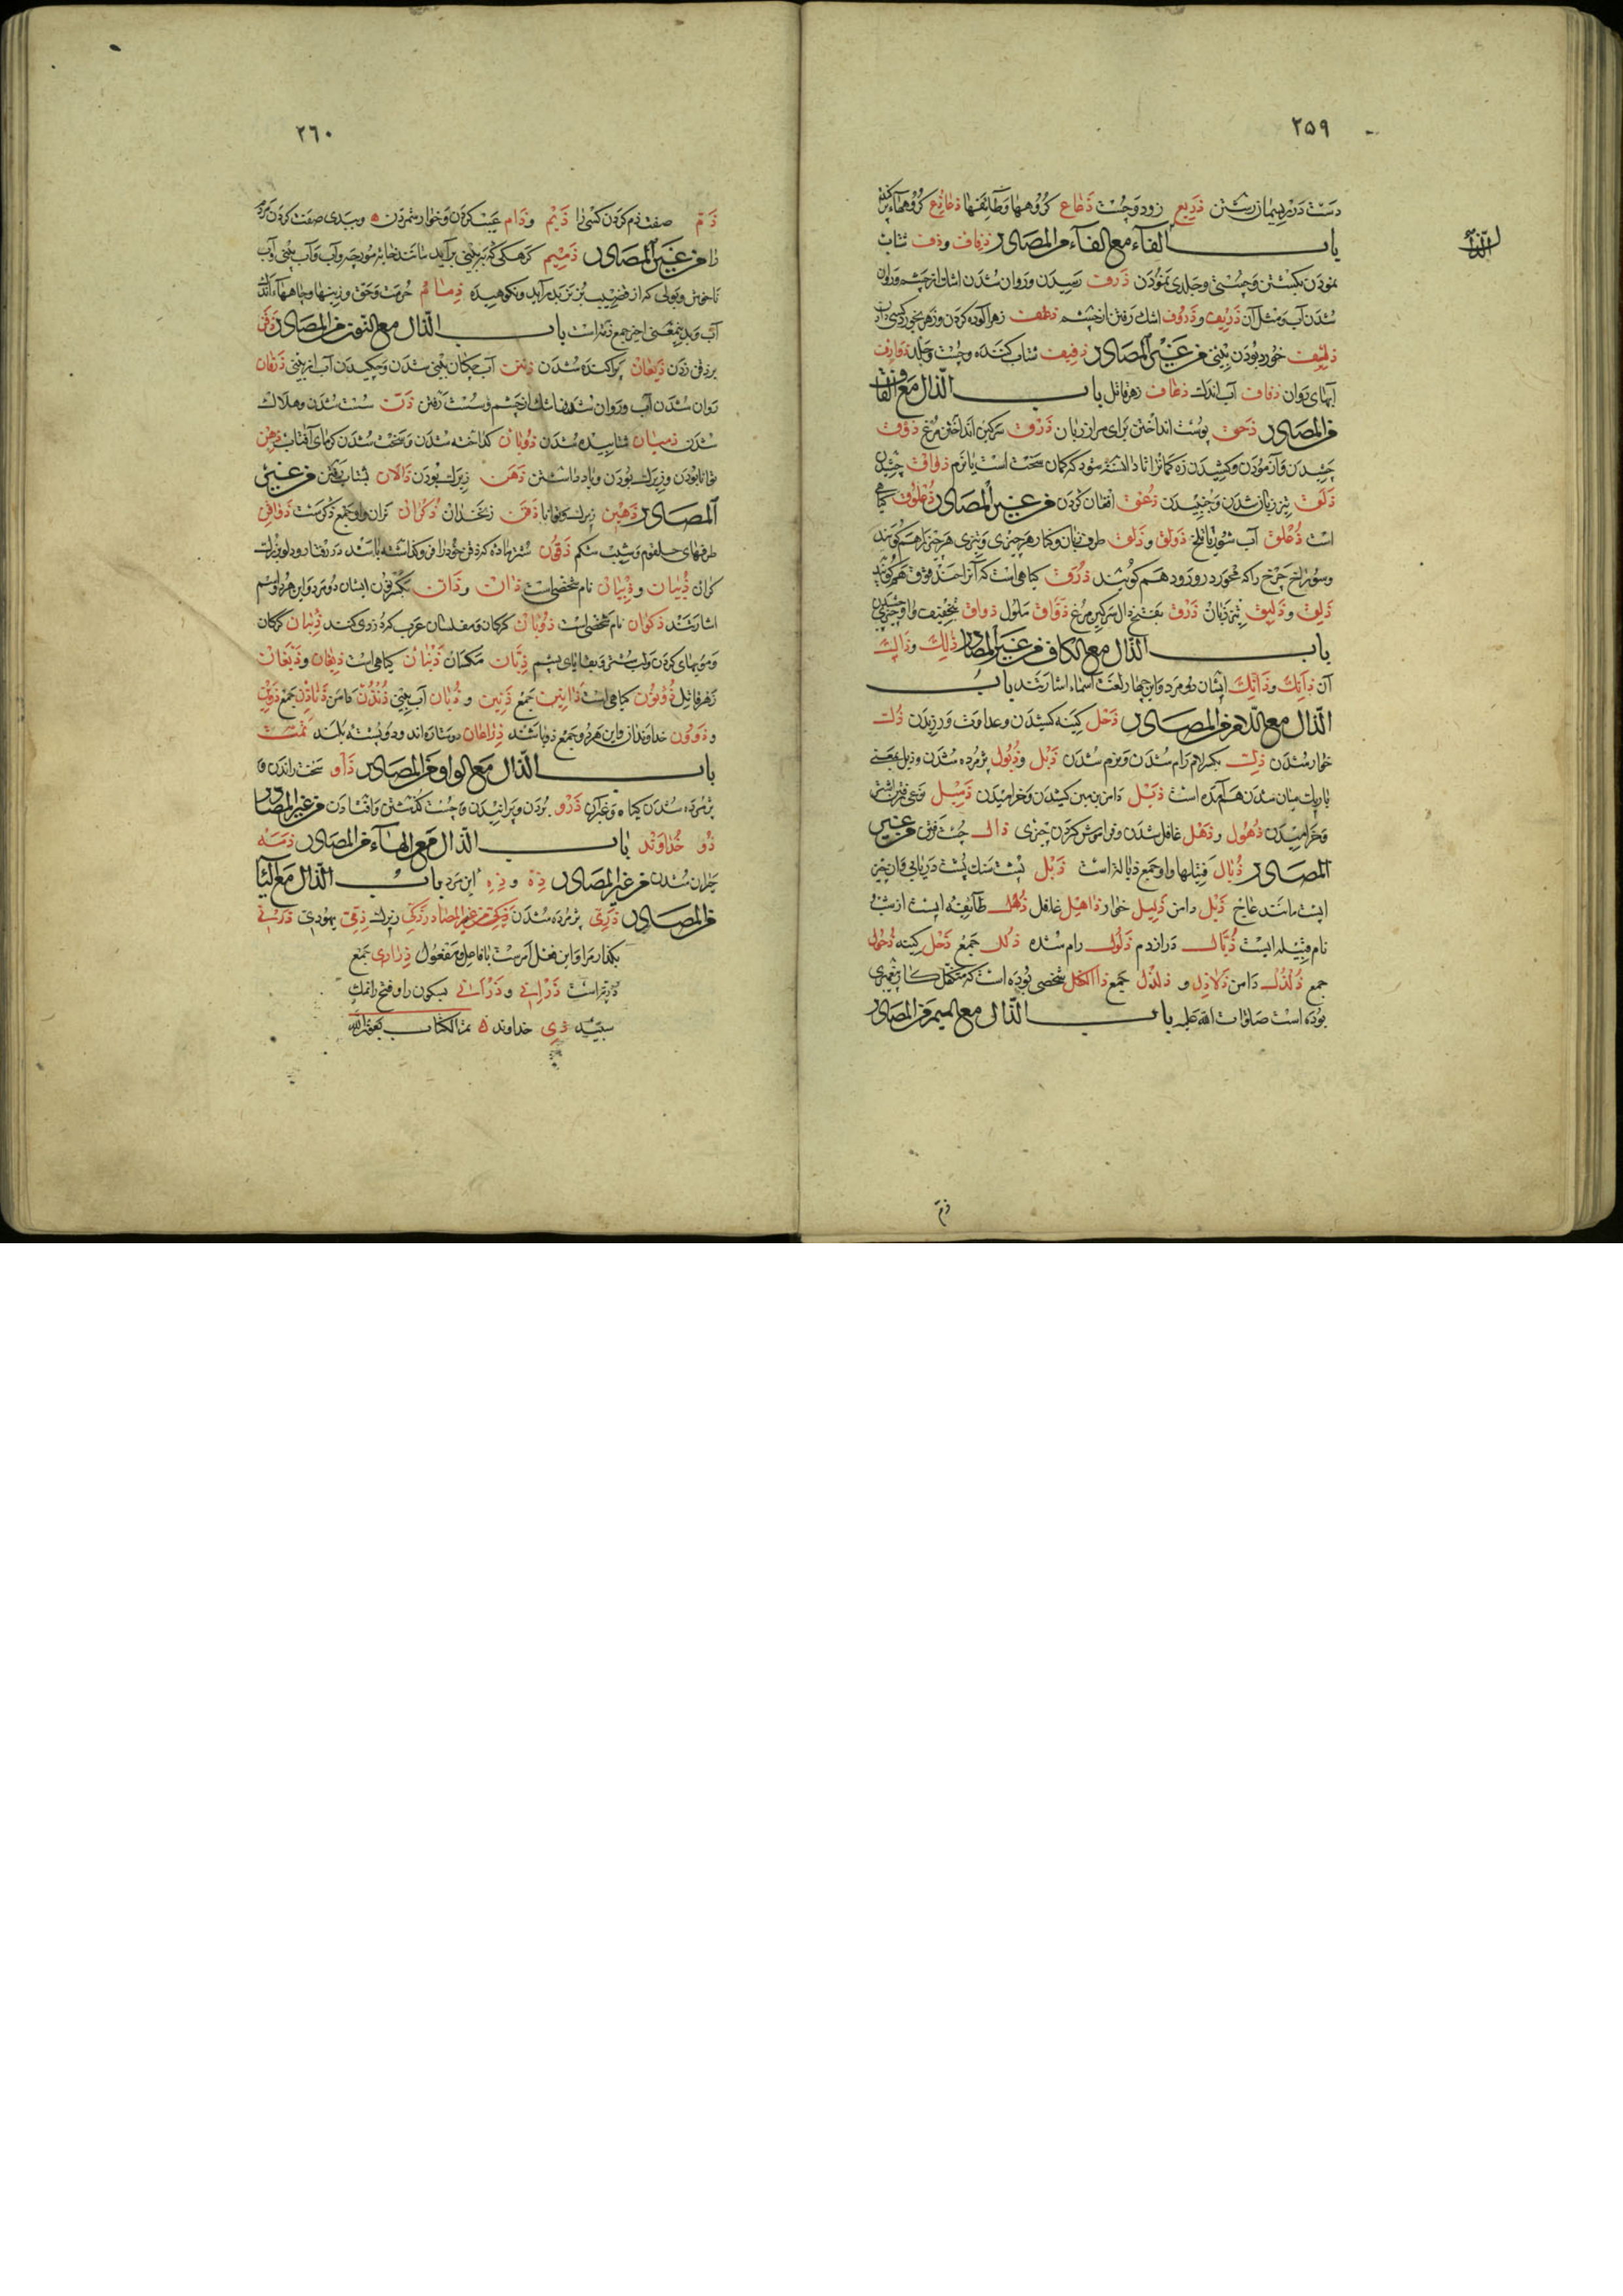 ٢٥٩
دست در پیمان زشتن ذریع زود و چست ذعاع کروهها و طائفها ذعاذع کروههاء
الذال
باب الفآء مع الفآء من المصادر ذفاف و ذف شتاب
نمودن بکشتن و چستی و جلدی نمودن ذرف رسیدن و روان شدن اشک از چشم و روان
شدن آب و مثل آن ذریف و ذروف اشک رفتن از چشم ذعف زهر آلوده کردن و زهر بخورد کسی دادن
خورد بودن بینی من غیر المصادر ذفیف شتاب کننده و چست و جلد ذوارف
آبهای روان ذفاف آب اندک ذعاف زهر قاتل باب الذال مع القاف
من المصادر ذحق پوست انداختن برای مرار زبان ذرق سرکین انداختن مرغ ذوق
چشیدن و آزمودن و کشیدن زه کمانرا تا دانسته شود که کمان سخت است یا نرم ذواق چشیدن
ذلق تیز زبان شدن و جنبیدن ذعق افغان کردن من غیر المصادر ذعلوق کیاهی
است ذعلق آب شور یا تلخ ذولق و ذلق طرف زبان و کنار هر چیزی و تیزی هر چیز را هم کویند
و سوراخ چرخ را که محور درو رود هم کویند ذرق کیاهی است که آنرا حندقوق هم کویند
ذلق و ذلیق تیز زبان ذرق بفتح ذال سرکین مرغ ذواق ملول ذواق بتخفیف واو چیزی
باب الذال مع الکاف من غیر المصادر ذلک و ذالک
آن ذانک و ذانّک ایشان دو مرد و این چهار لغت اسماء اشارتند باب
الذال مع اللام من المصادر ذحل کینه کشیدن و عداوت ورزیدن ذلت
خوار شدن ذل بکسر لام رام شدن و نرم شدن ذبل و ذبول پژمرده شدن و ذبل بمعنی
باریک میان شدن هم آمده است ذیل دامن بزمین کشیدن و خرامیدن ذمیل نوعی رفتن اشتر
و خرامیدن ذهول و ذهل غافل شدن و فراموش کردن چیزی ذال چست رفتن من غیر
المصادر ذبال فتیلها و او جمع ذباله است ذبل پشت سنک پشت دریائی و آن چیز
ایست مانند عاج ذیل دامن ذلیل خوار ذاهل غافل ذهل طایفه ایست از
نام قبیله ایست ذیال دراز دم ذلول رام شده ذلل جمع ذحل کینه ذحول
جمع ذلذل دامن ذلاذل و ذلذل جمع ذا الکفل شخصی بوده است که متکفل کار پیغمبری
بوده است صلوات الله علیه باب الذال مع المیم من المصادر
ذم
٢٦٠
ذم صفت ذم کردن کسی را ذیم و ذام عیب کردن و خوار شمردن و ببدی صفت کردن مردم
را من غیر المصادر ذمیم کرهکی که بر بینی برآید مانند خایه مورچه و آب و آب بینی و آب
ناخوش و بولی که از قضیب بز نر بدر آید و نکوهیده ذمام حرمت و حق و زینهار و چاههاء اندک
آب و بدین معنی اخیر جمع ذمه است باب الذال مع النون من المصادر ذقن
بر ذقن زدن ذیعان پراکنده شدن ذنن آب چکان بینی شدن و چکیدن آب از بینی ذرفان
روان شدن آب و روان شدن اشک از چشم و سست رفتن ذن سست شدن و هلاک
شدن ذمیان شتابیده شدن ذوبان کداخته شدن و سخت شدن کرمای آفتاب ذهن
توانا بودن و زیرک بودن و یاد داشتن ذهن زیرک بودن ذالان شتاب رفتن من غیر
المصادر ذهین زیرک و توانا ذقن زنخدان ذکران نران و او جمع ذکر است ذواقن
طرفهای حلقوم و شیب شکم ذقون شتر ماده که ذقن خود را فرو کذاشته باشد در رفتار و دلو
کران ذبیان و ذبیان نام شخصی است ذان و ذان بکسر نون ایشان دو مرد و این هر دو اسم
اشارتند ذکوان نام شخصی است ذؤبان کرکان و مفلسان عرب که دزدی کنند ذئبان کرکان
و مویهای کردن و لب شتر و بقایای پشم ذبان مکسان ذنبان کیاهی است ذیفان و ذیفان
زهر قاتل ذونون کیاهی است ذآنین جمع ذنین و ذنان آب بینی ذنذن دامن ذناذن جمع ذوین
و ذوون خداوندان و این هر دو جمع ذو باشند ذراعان دو ستاره اند و دو پشته بلند تمت
باب الذال مع الواو من المصادر ذاو سخت راندن و
پژمرده شدن کیاه و غیر آن ذرو بودن و پرانیدن و چست کذشتن و افتادن من غیر المصادر
ذو خداوند باب الذال مع الهاء من المصادر ذمه
حیران شدن من غیر المصادر ذه و ذه این مرد باب الذال مع الیا
من المصادر ذوی پژمرده شدن من غیر المصادر ذکی زیرک ذمی یهودی ذرنی
بکذار مرا و این فعل امر ست با فاعل و مفعول ذراری جمع
ذریه است ذرانی و ذرانی بسکون را و فتح را نمک
سپید ذی خداوند تمت الکتاب بعون الله